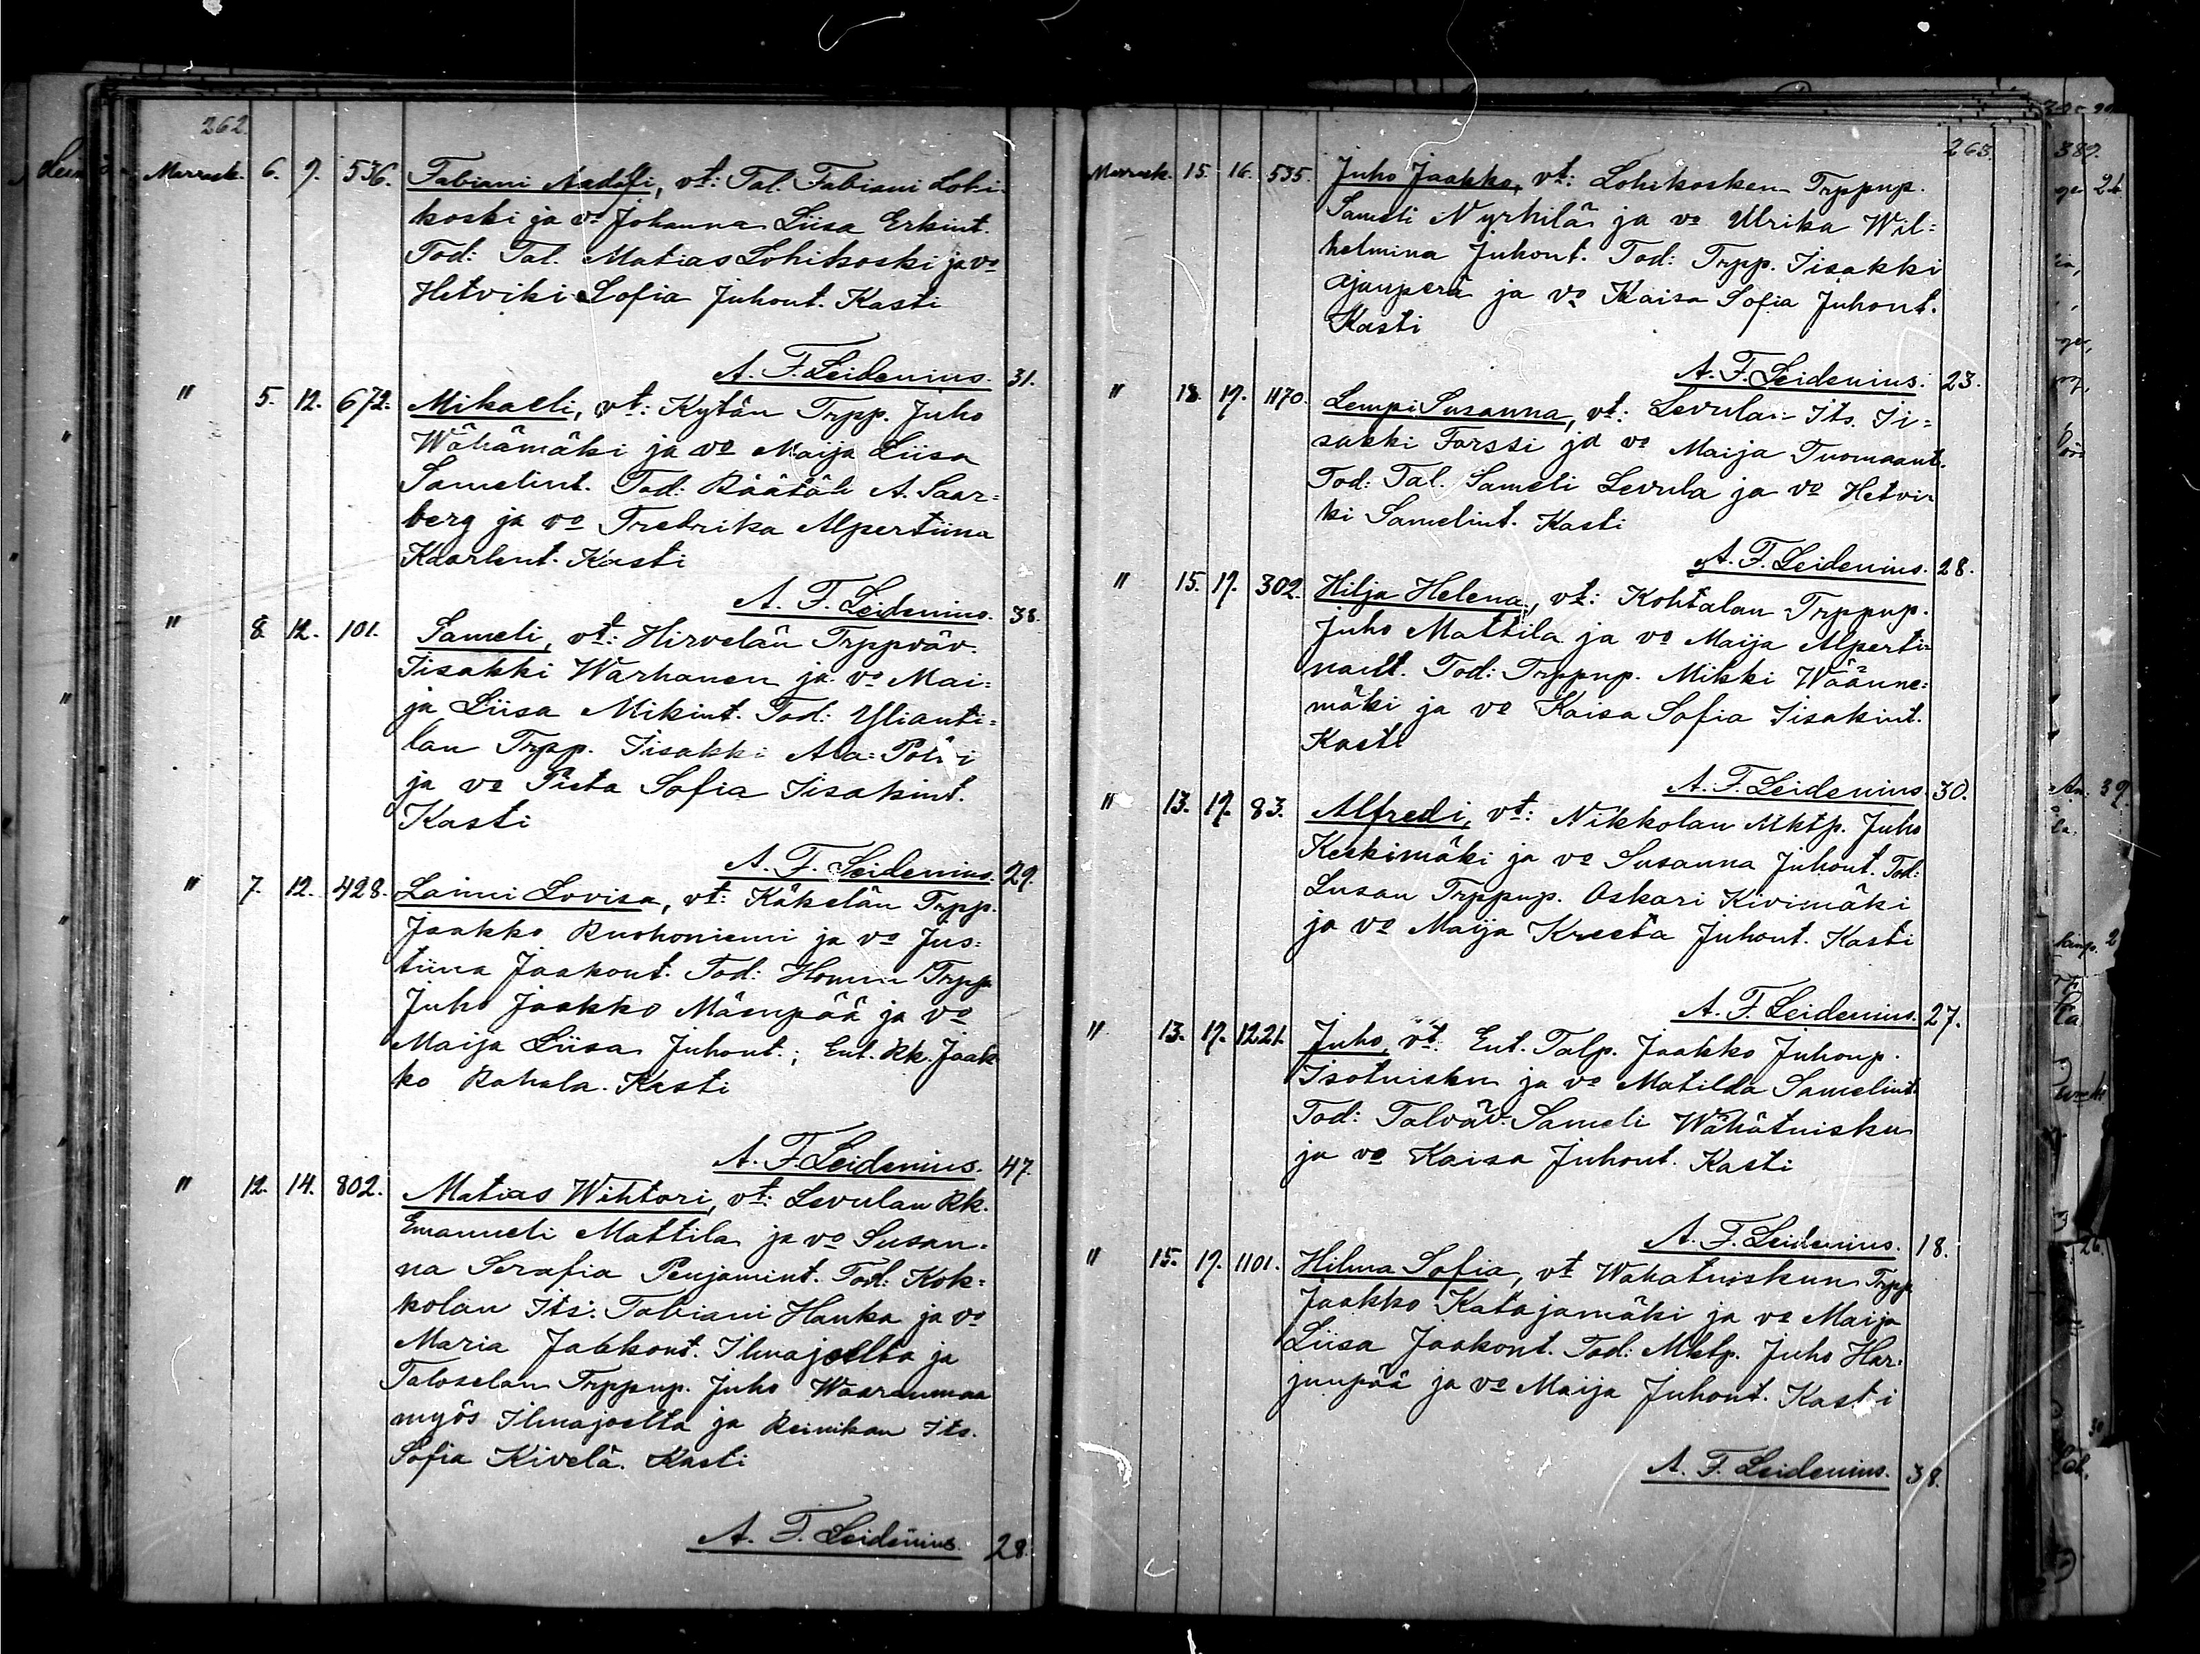 262.
Marrask. 6. 9. 536. Fabiani Aadolfi, vt: Tal. Fabiani Lohi-
koski ja vo Johanna Liisa Erkint.
Tod: Tal. Matias Lohikoski ja vo
Hetviki Sofia Juhont. Kasti
A. F. Leidenius. 31.
" 5. 12. 672. Mikaeli, vt: Kytän Trpp. Juho
Wähämäki ja vo Maija Liisa
Samelint. Tod: Räätäli A. Saar=
berg ja vo Fredrika Alpertiina
Kaarlent. Kasti
A. F. Leidenius. 38.
" 8. 12. 101. Sameli, vt: Hirvelän Trppväv.
Iisakki Warhanen ja vo Mai=
ja Liisa Mikint. Tod: Ylianti=
lan Trpp. Iisakki
ja vo Sofia Iisakint.
Kasti
A. F. Leidenius. 29.
" 7. 12. 428. Laimi Lovisa, vt: Käkelän Trpp.
Jaakko Ruohoniemi ja vo Jus=
tiina Jaakont. Tod: Trpp.
Juho Jaakko Mäenpää ja vo
Maija Liisa Juhont.; Ent. Rk. Jaak
ko Rahola. Kasti
A. F. Leidenius. 47.
" 12. 14. 802. Matias Wihtori, vt: Levulan Rk.
Emanueli Mattila ja vo Susan=
na Serafia Penjamint. Tod: Kok=
kolan Its: Fabiani Hauka ja vo
Maria Jaakont. Ilmajoelta ja
Taloselan Trppup. Juho Waaranmaa
myös Ilmajoelta ja Reinikan Its.
Sofia Kivelä. Kasti
A. F. Leidenius. 28.
263.
Marrask. 15. 16. 535. Juho Jaakko, vt: Lohikosken Trppup.
Sameli Nyrhilä ja vo Ulrika Wil=
helmina Juhont. Tod: Trpp. Iisakki
Ojanperä ja vo Kaisa Sofia Juhont.
Kasti
A. F. Leidenius. 23.
" 18. 19. 1170. Lempi Susanna, vt: Levulan Its. Ii=
sakki Forssi ja vo Maija Tuomaant.
Tod: Tal. Sameli Levula ja vo Hetvi-
ki Samelint. Kasti
A. F. Leidenius. 28.
" 15. 19. 302. Hilja Helena, vt: Kohtalan Trppup.
Juho Mattila ja vo Maija Alperti-
nant. Tod: Trppup. Mikki Wäänne=
mäki ja vo Kaisa Sofia Iisakint.
Kasti
A. F. Leidenius. 30.
" 13. 19. 83. Alfredi, vt: Nikkolan Mktp. Juho
Keskimäki ja vo Susanna Juhont. Tod:
Lusan Trppup. Oskari Kivimäki
ja vo Maija Kreeta Juhont. Kasti
A. F. Leidenius. 27.
" 13. 19. 1221. Juho, vt: Ent. Talp. Jaakko Juhonp.
Isotuisku ja vo Matilda Samelint.
Tod: Talväv. Sameli Wähätuisku
ja vo Kaisa Juhont. Kasti
A. F. Leidenius. 18.
" 15. 19. 1101. Hilma Sofia, vt Wähätuiskun Trpp.
Jaakko Katajamäki ja vo Maija
Liisa Jaakont. Tod: Mktp. Juho Har-
junpää ja vo Maija Juhont. Kasti
A. F. Leidenius. 38.